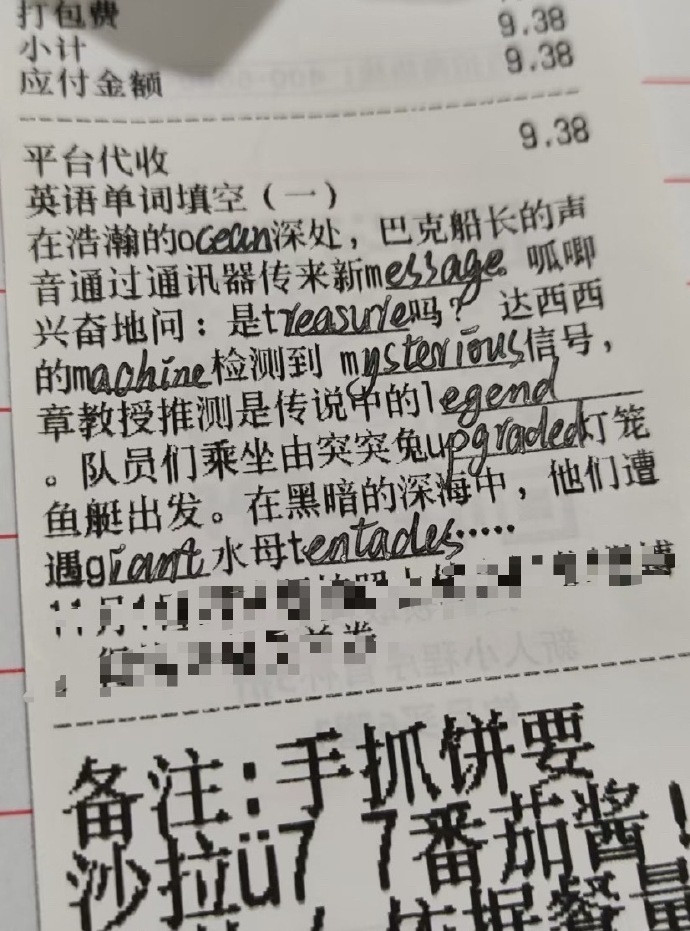 打包费 9.38
小计 9.38
应付金额
平台代收 9.38
英语单词填空（一）
在浩瀚的ocean深处，巴克船长的声
音通过通讯器传来新message。呱唧
兴奋地问：是treasure吗？ 达西西
的machine检测到 mysterious信号，
章教授推测是传说中的legend
。队员们乘坐由突突兔upgraded灯笼
鱼艇出发。在黑暗的深海中，他们遭
遇giant水母tentacles……
备注:手抓饼要
沙拉ü7 7番茄酱！